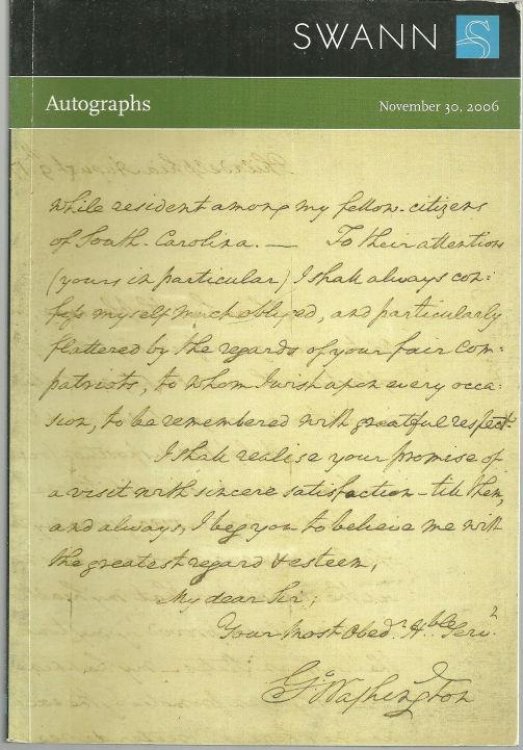 SWANN
Autographs
November 30, 2006
while resident among my fellow-citizens
of South-Carolina. — To their attention
(yours in particular) I shall always con-
fess myself much obliged, and particularly
flattered by the regards of your fair com-
patriots, to whom I wish upon every occa-
sion, to be remembered with greatful respect.
I shall realise your promise of
a visit with sincere satisfaction - till then,
and always, I beg you to believe me with
the greatest regard & esteem,
My dear Sir;
Your most Obedt. Hble Servt
Go: Washington